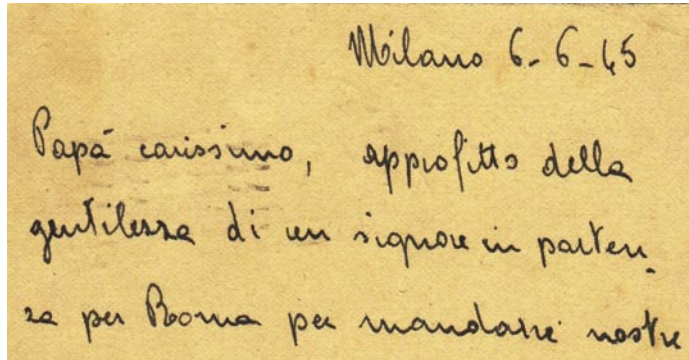 Milano 6-6-45
Papà carissimo, approfitto della
gentilezza di un signore in parten-
za per Roma per mandarti nostre